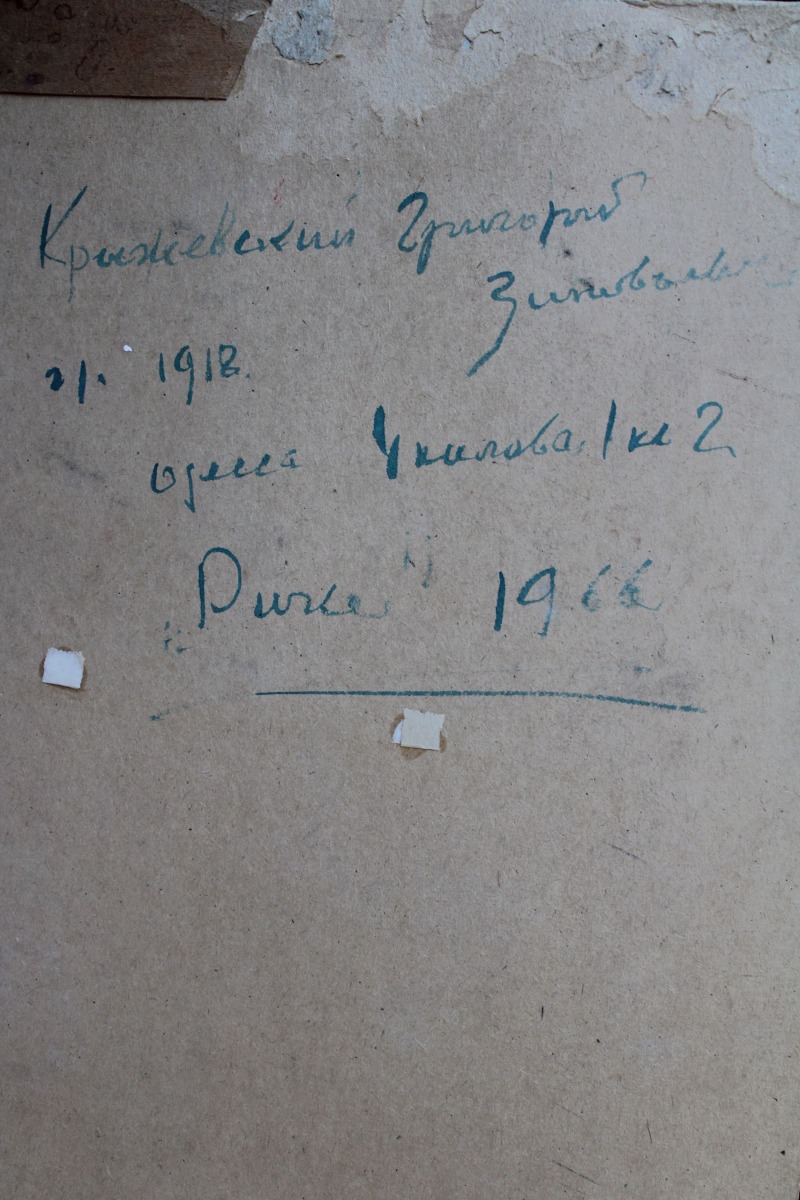 Крыжевский Григорий
Зиновьевич
г.р. 1918.
Одесса Чкалова 1 кв 2
"Рички" 1966